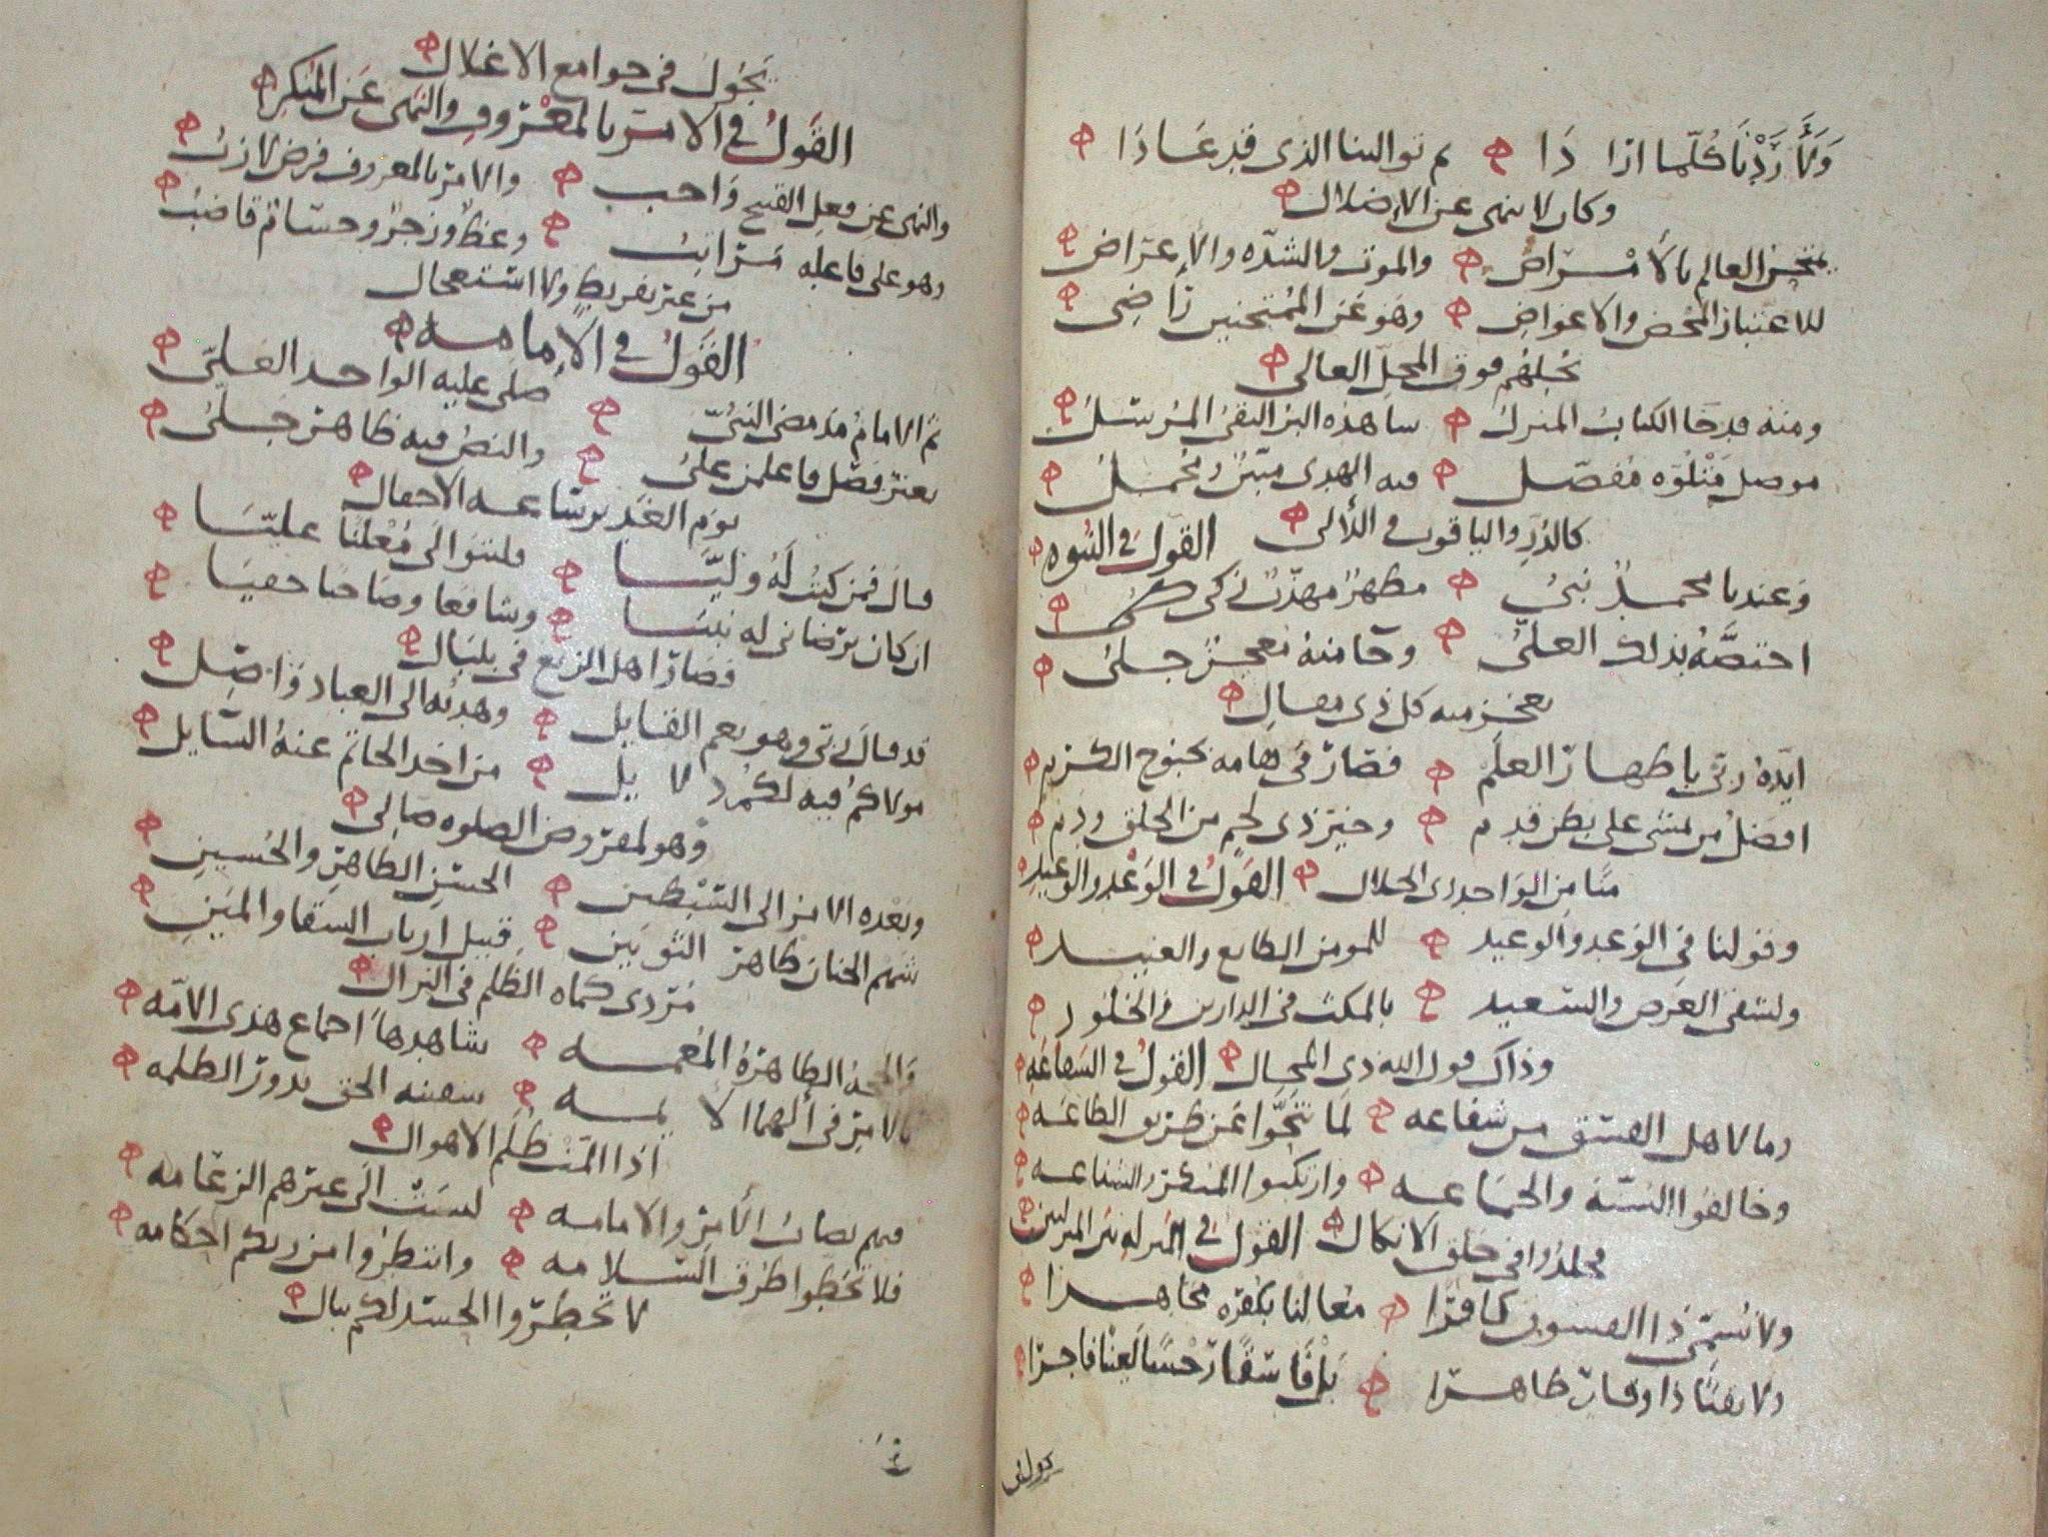 ولا رددنا كلما ازا دا لم توالينا الذي قد عادا
وكان لا ينهى عن الإضلال
يمتحن العالم بالأمراض والموت والشده والإعراض
للاعتبار المحض والاعواض وهو عن الممتحنين راضي
يحلهم فوق المحل العالي
ومنه قد جا الكتاب المنزل ساهده البر التقي المرسل
موصل متلوه مفصل فيه الهدى مبين ومجمل
كالدر والياقوت في اللألي القول في النبوه
وعندنا محمد نبي مطهر مهذب زكي
اختصه بذلك العلي وجا منه معجز جلي
يعجز منه كل ذي مقال
ايده ربي باظهار العلم فصار في هامه بحبوح الكرم
افضل من يمشي على بطن قدم وخير ذي لحم من الخلق ودم
منا من الواحد ذي الجلال القول في الوعد والوعيد
وقولنا في الوعد والوعيد للمومن الطايع والعنيد
ولشقي العرض والسعيد بالمكث في الدارين في الخلود
وذاك قول الله ذي المحال القول في الشفاعه
وما لاهل الفسق من شفاعه لما تنحوا عن طريق الطاعه
وخالفوا السنه والجماعه وارتكبوا المنكر والشناعه
فخلدوا في حلق الانكال القول في المنزله بين المنزلتين
ولا نسمي ذا الفسوق كافرا معالنا بكفره مجاهرا
ولا تقيا ذا وقار طاهرا بل فاسقا رجسا لعينا فاجرا
يجول في جوامع الاغلال
القول في الامر بالمعروف والنهي عن المنكر
والنهي عن فعل القبيح واجب والامر بالمعروف فرض لازب
وهو على فاعله مراتب وعظ وزجر وحسام قاضب
من غير تفريط ولا استعجال
القول في الإمامه
ثم الامام مذ مضى النبي صلى عليه الواحد العلي
بغير فصل فاعلمن علي والنص فيه ظاهر جلي
يوم الغدير ساعه الاحفال
قال فمن كنت له وليا فليتوالى معلنا عليا
ان كان يرضاني له نبيا وشافعا وصاحبا حفيا
فصار اهل الزيغ في بلبال
قد قال لي ربي وهو نعم القايل وهديه الى العباد واصل
مولاكم فيه لكم دلايل من اخذ الخاتم عنه السايل
وهو لمفروض الصلوه صالي
وبعده الامر الى السبطين الحسن الطاهر والحسين
شهم الجنان طاهر الثوبين قبيل ارباب السقا والمين
مردي كماه الظلم في النزال
والحجه الطاهره المعمه شاهدها اجماع هذي الامه
بالامر في الهما الايمه سفينه الحق بدور الظلمه
اذا المت ظلم الاهوال
فهم نصاب الأمر والامامه ليست الى غيرهم الزعامه
فلا تخطوا طرق السلامه وانتظروا من ربكم احكامه
لا تخطروا الحسد لكم ببال